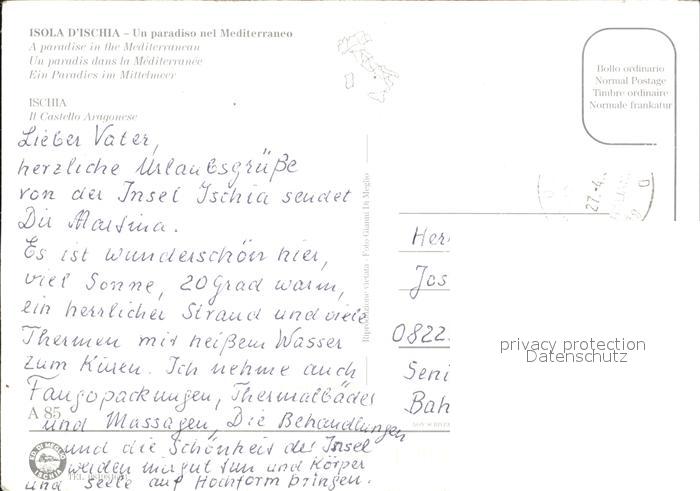 ISOLA D'ISCHIA – Un paradiso nel Mediterraneo
A paradise in the Mediterranean
Un paradis dans la Méditerranée
Ein Paradies im Mittelmeer
ISCHIA
Il Castello Aragonese
Lieber Vater,
herzliche Urlaubsgrüße
von der Insel Ischia sendet
Dir Martina.
Es ist wunderschön hier,
viel Sonne, 20 Grad warm,
ein herrlicher Strand und viele
Thermen mit heißem Wasser
zum Kuren. Ich nehme auch
Fangopackungen, Thermalbäder
und Massagen, Die Behandlungen
und die Schönheit der Insel
werden mir gut tun und Körper
und Seele auf Hochform bringen.
A 85
ISCHIA
Riproduzione vietata - Foto Gianni Di Meglio
Bollo ordinario
Normal Postage
Timbre ordinaire
Normale frankatur
27.-4.
Her
Jos
0822
Seni
Bah
privacy protection
Datenschutz